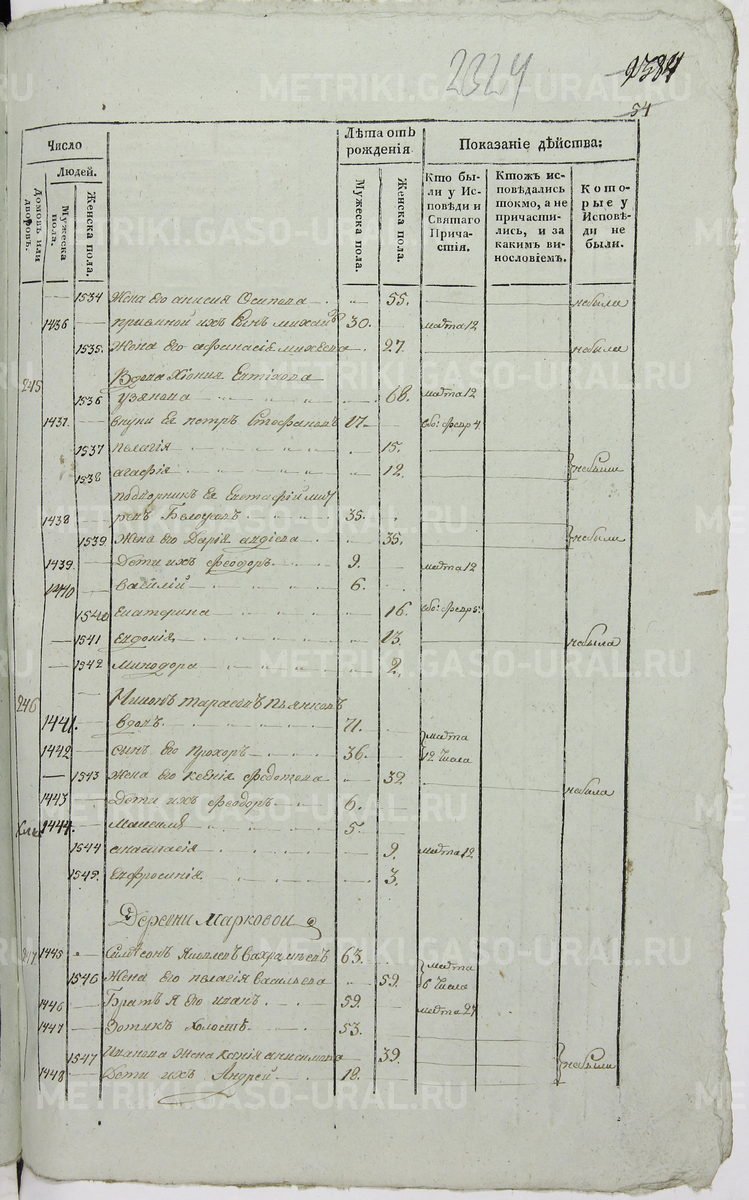 2324
2584
54
Число
Людей.
Домовъ или дворовъ.
Мужеска пола.
Женска пола.
Лѣта отъ рожденія
Мужеска пола.
Женска пола.
Показаніе дѣйства:
Кто бы-
ли у Ис-
повѣди и
Святаго
Прича-
стія.
Ктожъ ис-
повѣдались
токмо, а не
причасти-
лись, и за
какимъ ви-
нословіемъ.
Кото-
рые у
Исповѣ-
ди не
были.
1534 Жена его анисия Осипова 55. небыла
1436 приемной ихъ сынъ михаилъ 30. марта 12
1535. Жена его афанасія михеева 27. небыла
245 Вдова Хіония Евтихова
1536 узянова 68. марта 12
1437. внуки Ея петръ Стефановъ 17. февр 4.
1537 пелагія 15.
1538 агафія 12. небыли
подворникъ Ея Евстафій
1438 Белоусовъ 35.
1539. Жена его Дарія 35. небыли
1439. Дети ихъ феодоръ 9. марта 12
1440 василій 6.
1540 Екатерина 16. февр 5.
1541 Евдокія 13. небыла
1542 Минодора 2.
246 тарасовъ Пьянковъ
1441. вдовъ 71. марта
1442 сынъ Его Прохоръ 36. 12 Числа
1543 Жена его Ксенія федотова 32. небыла
1443 Дети ихъ феодоръ 6.
1444. Максимъ 5.
1544 анастасія 9. марта 12
1545. Евфросинія 3.
Деревни Марковой
247 1445 Симеонъ Яковлевъ Вахрамеевъ 63. марта
1546 Жена Его пелагія Васильева 59. 6 Числа
1446 Братья его иванъ 59. марта 27
1447 Зотикъ Холостъ 53.
1547 Иванова жена Ксенія анисимова 39. небыли
1448 Дети ихъ Андрей 18.
METRIKI.GASO-URAL.RU